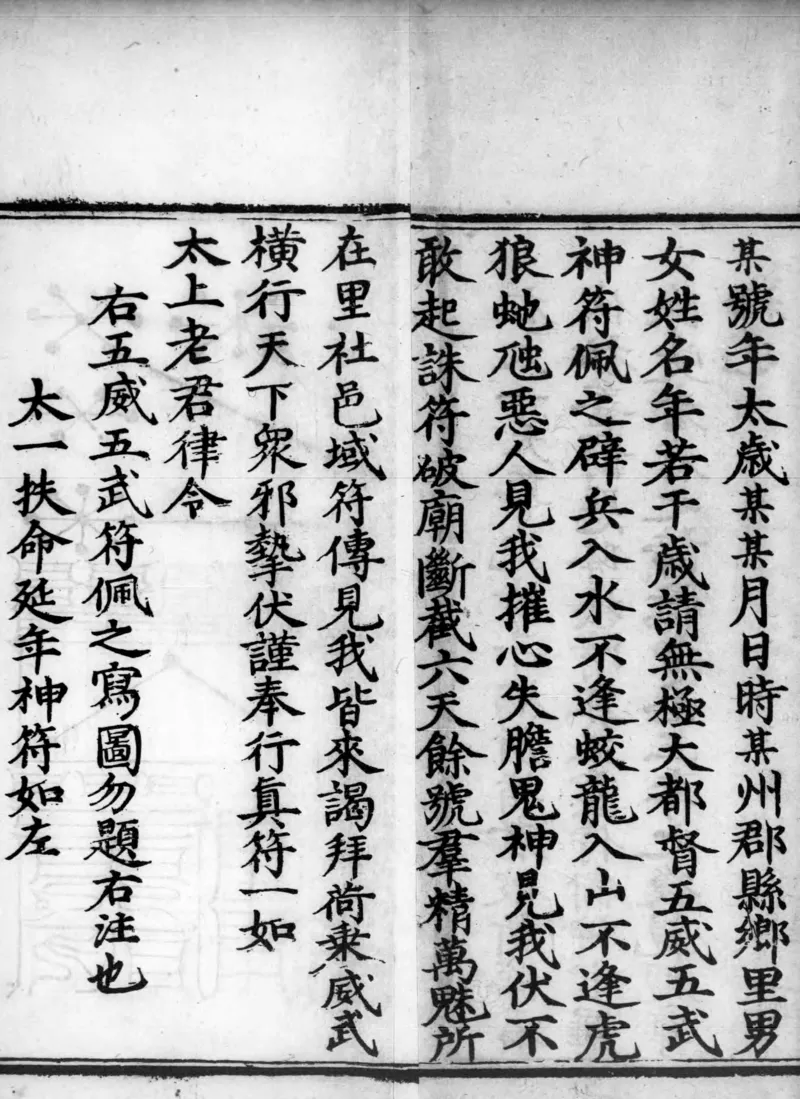 某號年太歲某某月日時某州郡縣鄉里男
女姓名年若干歲請無極大都督五威五武
神符佩之辟兵入水不逢蛟龍入山不逢虎
狼虵虺惡人見我摧心失膽鬼神見我伏不
敢起誅符破廟斷截六天餘號羣精萬魅所
在里社邑域符傳見我皆來謁拜荷乗威武
橫行天下眾邪摯伏謹奉行真符一如
太上老君律令
右五威五武符佩之寫圖勿題右注也
太一扶命延年神符如左